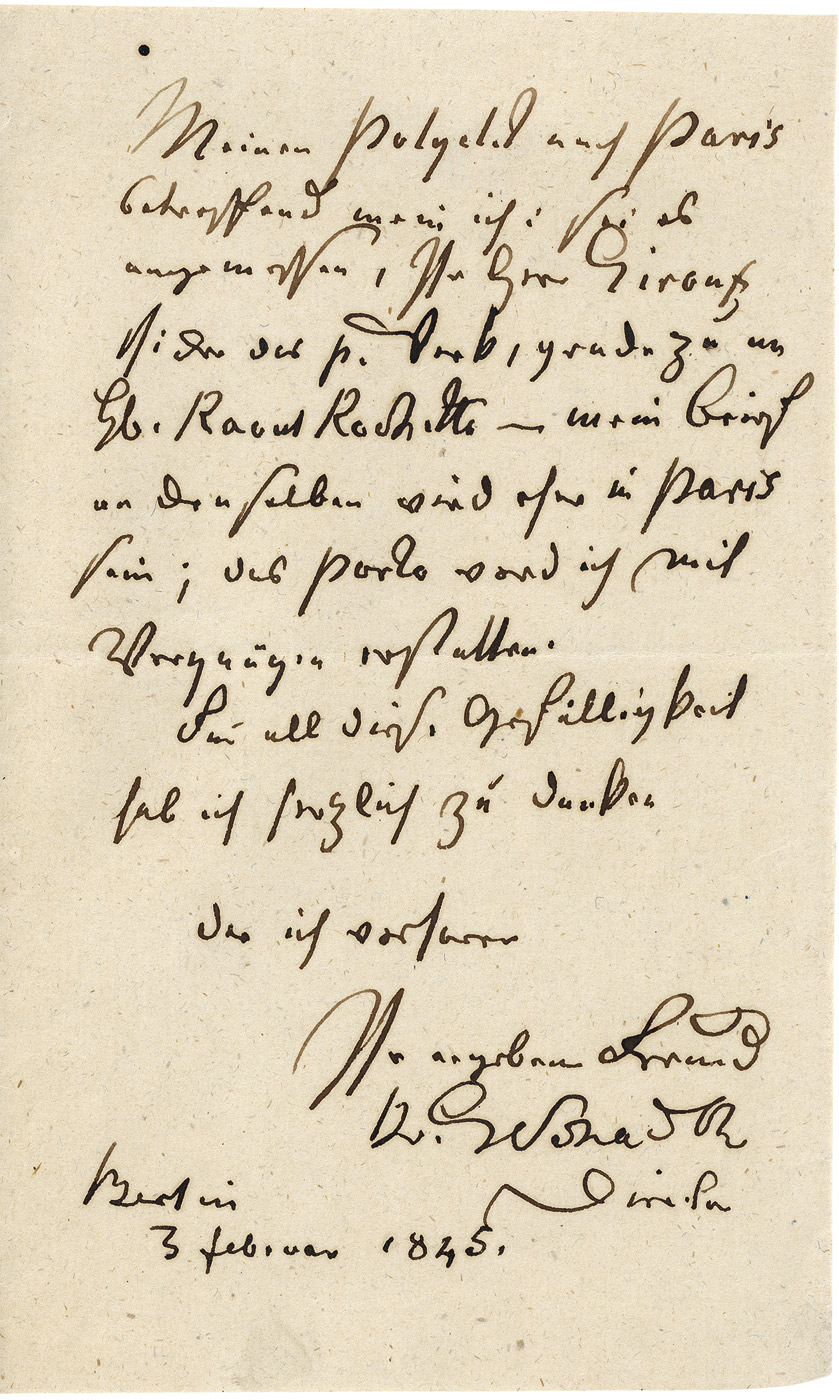 Meinen Polyclet nach Paris
betreffend mein ich: sei es
angemessen, Ihr Herr
das p. Werk, gerade zu an
Raoul Rochette — mein Brief
an denselben wird eher in Paris
sein; das Porto werd ich mit
Vergnügen erstatten.
Für all diese Gefälligkeit
hab ich herzlich zu danken
der ich verharre
Ihr ergebener Freund
Dr. G Schadow
Director
Berlin
3 Februar 1845.